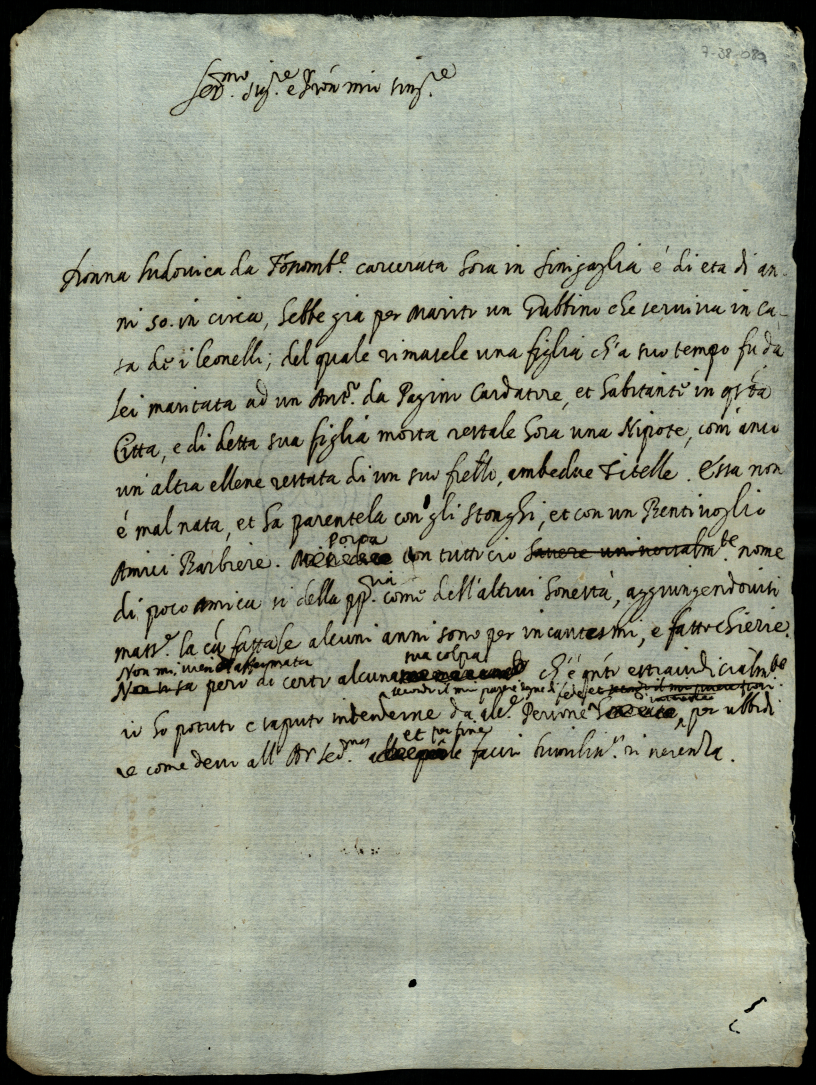 7-38-089
Ser.mo Sig.re e Pron mio sing.re
Donna Ludovica da Fosomb.e carcerata hora in Sinigaglia é di eta di an-
ni 50. in circa, hebbe gia per marito un Dubbino che serviva in ca-
sa de i Leonelli; del quale rimasele una figlia ch'a suo tempo fu da
lei maritata ad un Ant.o da Pagino Cardatore, et habitante in q.sta
Città, e di detta sua figlia morta restale hora una Nipote, com'anco
un altra ellene restata di un suo frello, ambedue Zitelle. Essa non
é mal nata, et ha parentela con gli Stonghi, et con un Bentivoglio
Amici Barbiere. Porta con tutto cio nome
di poco amica si della pp.ria come dell'altrui honestà, aggiungendovisi
mass.e la cù fattale alcuni anni sono per incantesmi, e fattochierie.
Non mi vien affermata sua colpa
Non si sa pero di certo alcuna ch'é q.nto estraiudicialm.te
secondo il mio
io ho potuto e saputo intenderne da alc.e Persone per ubbidi
et per fine
re come devo all' A. V. Ser.ma le faccio humiliss.a riverenza.